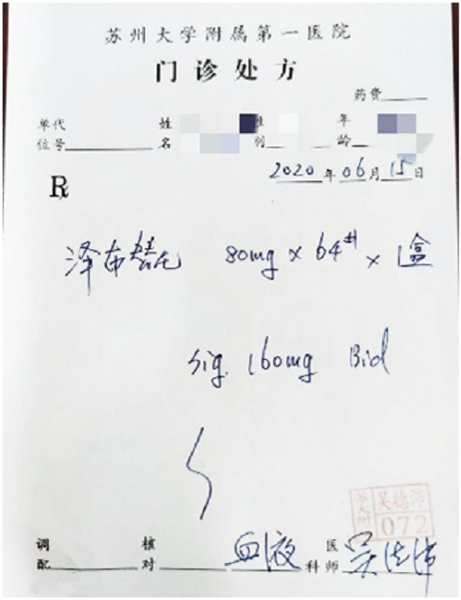 苏州大学附属第一医院
门诊处方
药费
单代 姓 性 年
位号 名 别 龄
2020年06月15日
R
泽布替尼 80mg × 64# × 1盒
Sig. 160mg Bid
吴德沛
072
调 核 医
配 对 血液 科师 吴德沛